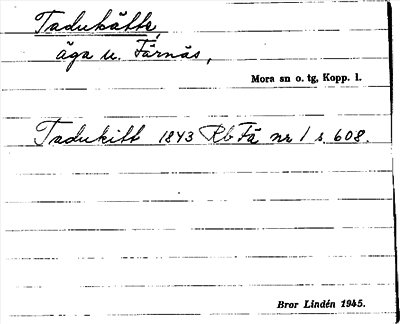 Tadukätte,
äga u. Färnäs,
Mora sn o. tg, Kopp. l.
Tadukitt 1843 Rb Fä nr 1 s. 608.
Bror Lindén 1945.